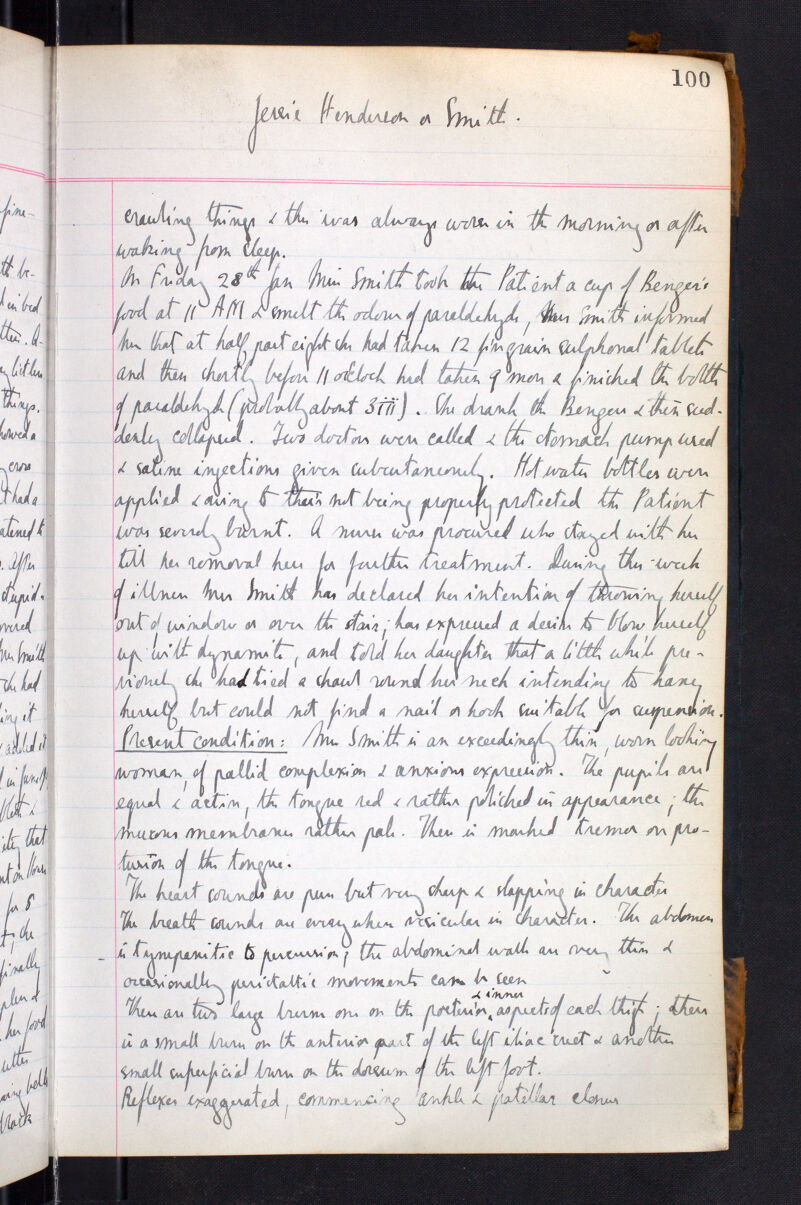 100
Jessie Henderson or Smith.
crawling things & this was always worse in the morning or after
waking from sleep.
On Friday 28th Jan Miss Smith took the Patient a cup of Benger's
food at 11 AM & smelt the odour of paraldehyde, Mrs Smith informed
her that at half past eight she had taken 12 five grain sulphonal tablets
and then shortly before 11 o'clock had taken 9 more & finished the bottle
of paraldehyde (probably about ʒiii). She drank the Bengers & then sud-
denly collapsed. Two doctors were called & the stomach pump used
& saline injections given subcutaneously. Hot water bottles were
applied & owing to their not being properly protected the Patient
was severely burnt. A nurse was procured who stayed with her
till her removal here for further treatment. During this week
of illness Mrs Smith has declared her intention of throwing herself
out of window or over the stair; has expressed a desire to blow herself
up with dynamite, and told her daughter that a little while pre-
viously she had tied a shawl round her neck intending to hang
herself but could not find a nail or hook suitable for suspension.
Present condition: Mrs Smith is an exceedingly thin, worn looking
woman, of pallid complexion & anxious expression. The pupils are
equal & active, the tongue red & rather polished in appearance; the
mucous membranes rather pale. There is marked tremor on pro-
trusion of the tongue.
The heart sounds are pure but very sharp & slapping in character
The breath sounds are everywhere vesicular in character. The abdomen
is tympanitic to percussion; the abdominal walls are very thin &
occasionally peristaltic movements can be seen
There are two large burns one on the posterior & inner aspects of each thigh; there
is a small burn on the anterior part of the left iliac crest & another
small superficial burn on the dorsum of the left foot.
Reflexes exaggerated, commencing ankle & patellar clonus